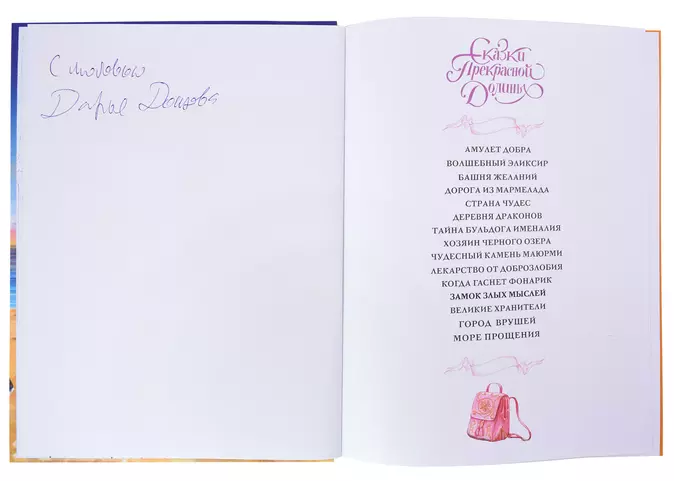 С любовью
Дарья Донцова
Сказки
Прекрасной
Долины
АМУЛЕТ ДОБРА
ВОЛШЕБНЫЙ ЭЛИКСИР
БАШНЯ ЖЕЛАНИЙ
ДОРОГА ИЗ МАРМЕЛАДА
СТРАНА ЧУДЕС
ДЕРЕВНЯ ДРАКОНОВ
ТАЙНА БУЛЬДОГА ИМЕНАЛИЯ
ХОЗЯИН ЧЕРНОГО ОЗЕРА
ЧУДЕСНЫЙ КАМЕНЬ МАЮРМИ
ЛЕКАРСТВО ОТ ДОБРОЗЛОБИЯ
КОГДА ГАСНЕТ ФОНАРИК
ЗАМОК ЗЛЫХ МЫСЛЕЙ
ВЕЛИКИЕ ХРАНИТЕЛИ
ГОРОД ВРУШЕЙ
МОРЕ ПРОЩЕНИЯ